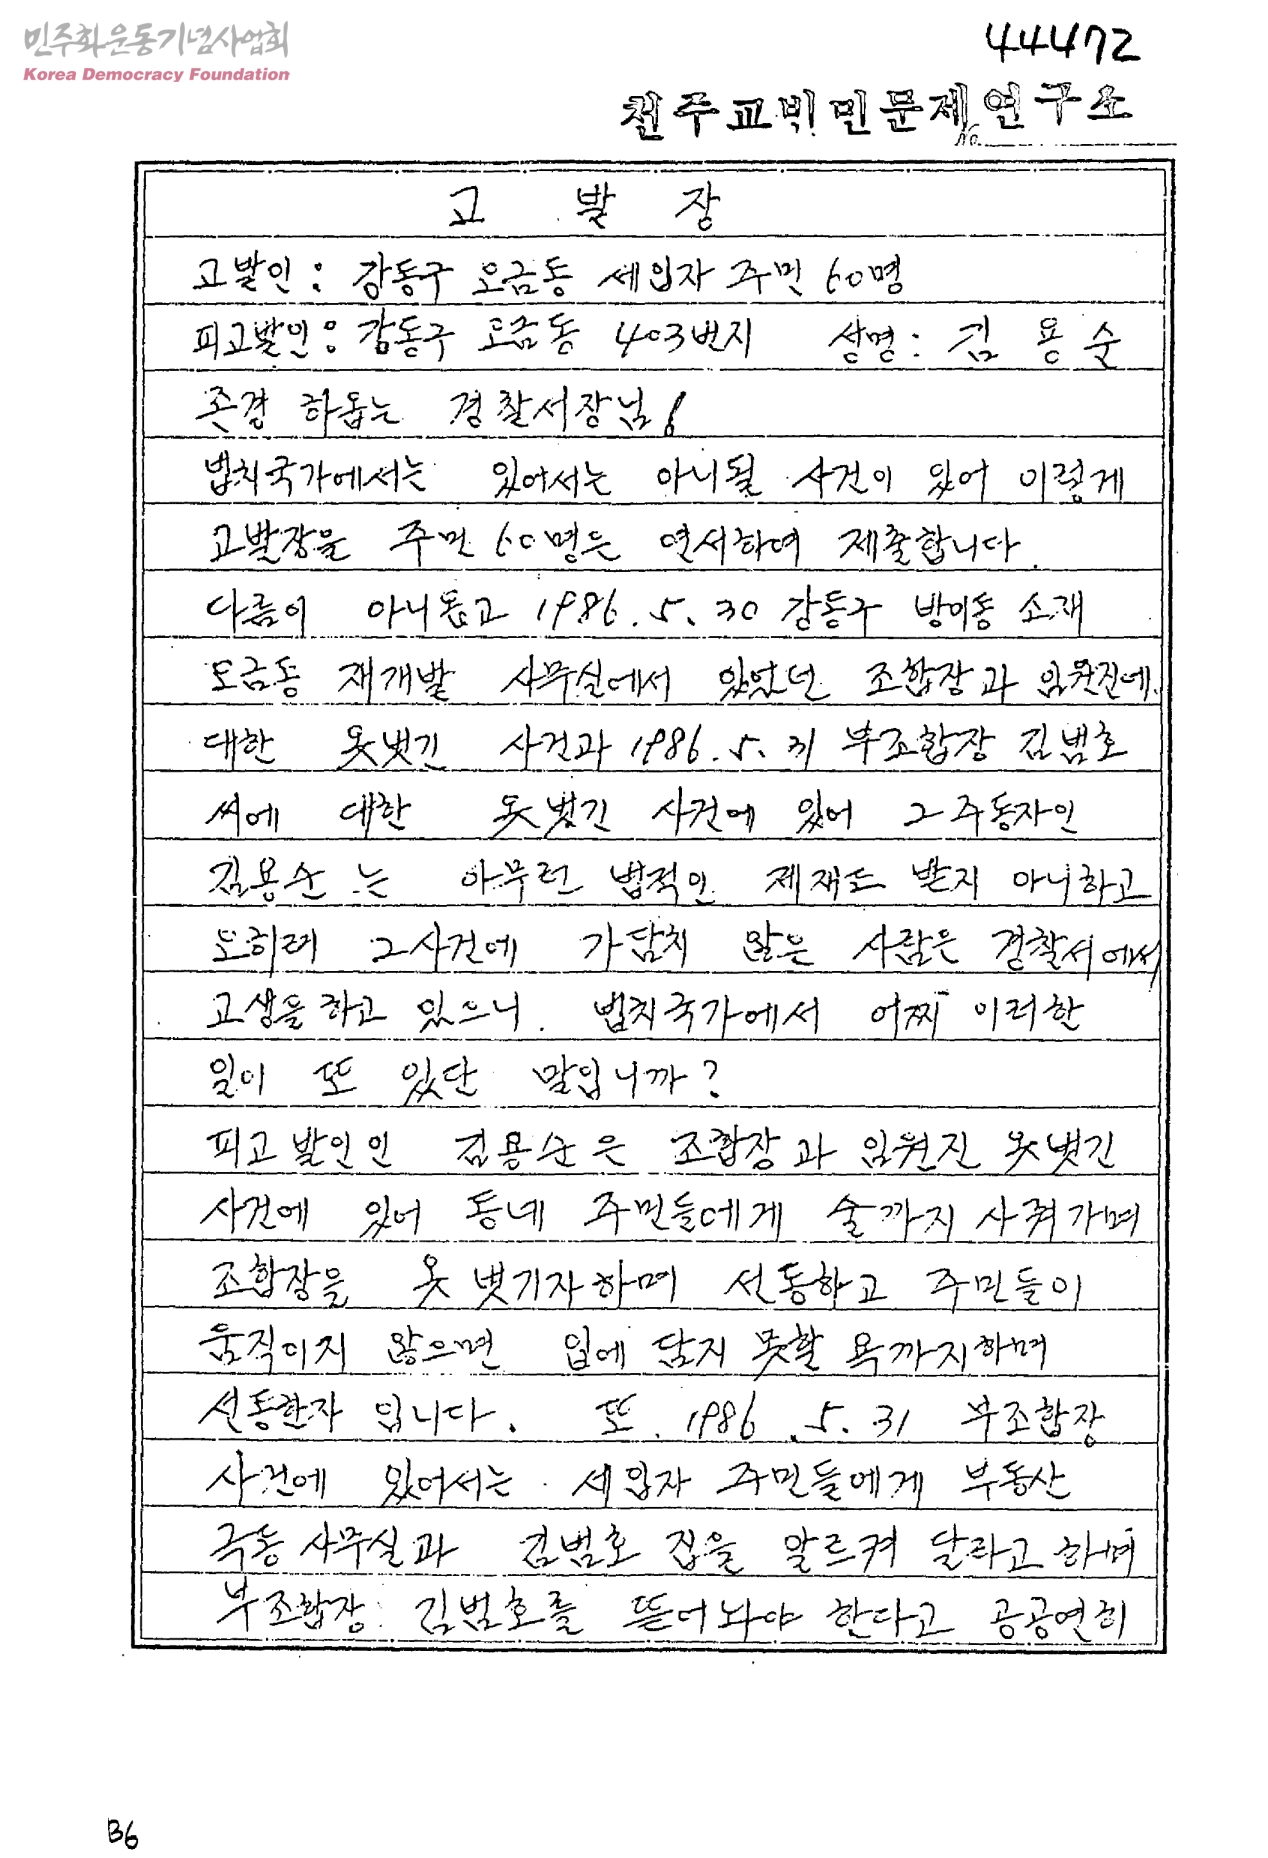 민주화운동기념사업회
Korea Democracy Foundation
44472
천주교빈민문제연구소
No.
고 발 장
고발인 : 강동구 오금동 세입자 주민 60명
피고발인 : 강동구 오금동 403번지 성명 : 김 용 순
존경 하옵는 경찰서장님!
법치국가에서는 있어서는 아니될 사건이 있어 이렇게
고발장을 주민 60명은 연서하여 제출합니다.
다름이 아니옵고 1986. 5. 30 강동구 방이동 소재
오금동 재개발 사무실에서 있었던 조합장과 임원진에
대한 옷벗긴 사건과 1986. 5. 31 부조합장 김범호
씨에 대한 옷벗긴 사건에 있어 그 주동자인
김용순는 아무런 법적인 제재도 받지 아니하고
오히려 그사건에 가담치 않은 사람은 경찰서에서
고생을하고 있으니. 법치국가에서 어찌 이러한
일이 또 있단 말입니까?
피고발인인 김용순은 조합장과 임원진 옷벗긴
사건에 있어 동네 주민들에게 술까지 사줘가며
조합장을 옷 벗기자하며 선동하고 주민들이
움직이지 않으면 입에 담지 못할 욕까지하며
선동한자 입니다. 또. 1986. 5. 31 부조합장
사건에 있어서는 세입자 주민들에게 부동산
극동 사무실과 김범호 집을 알르켜 달라고 하며
부조합장 김범호를 뜯어놔야 한다고 공공연히
B6